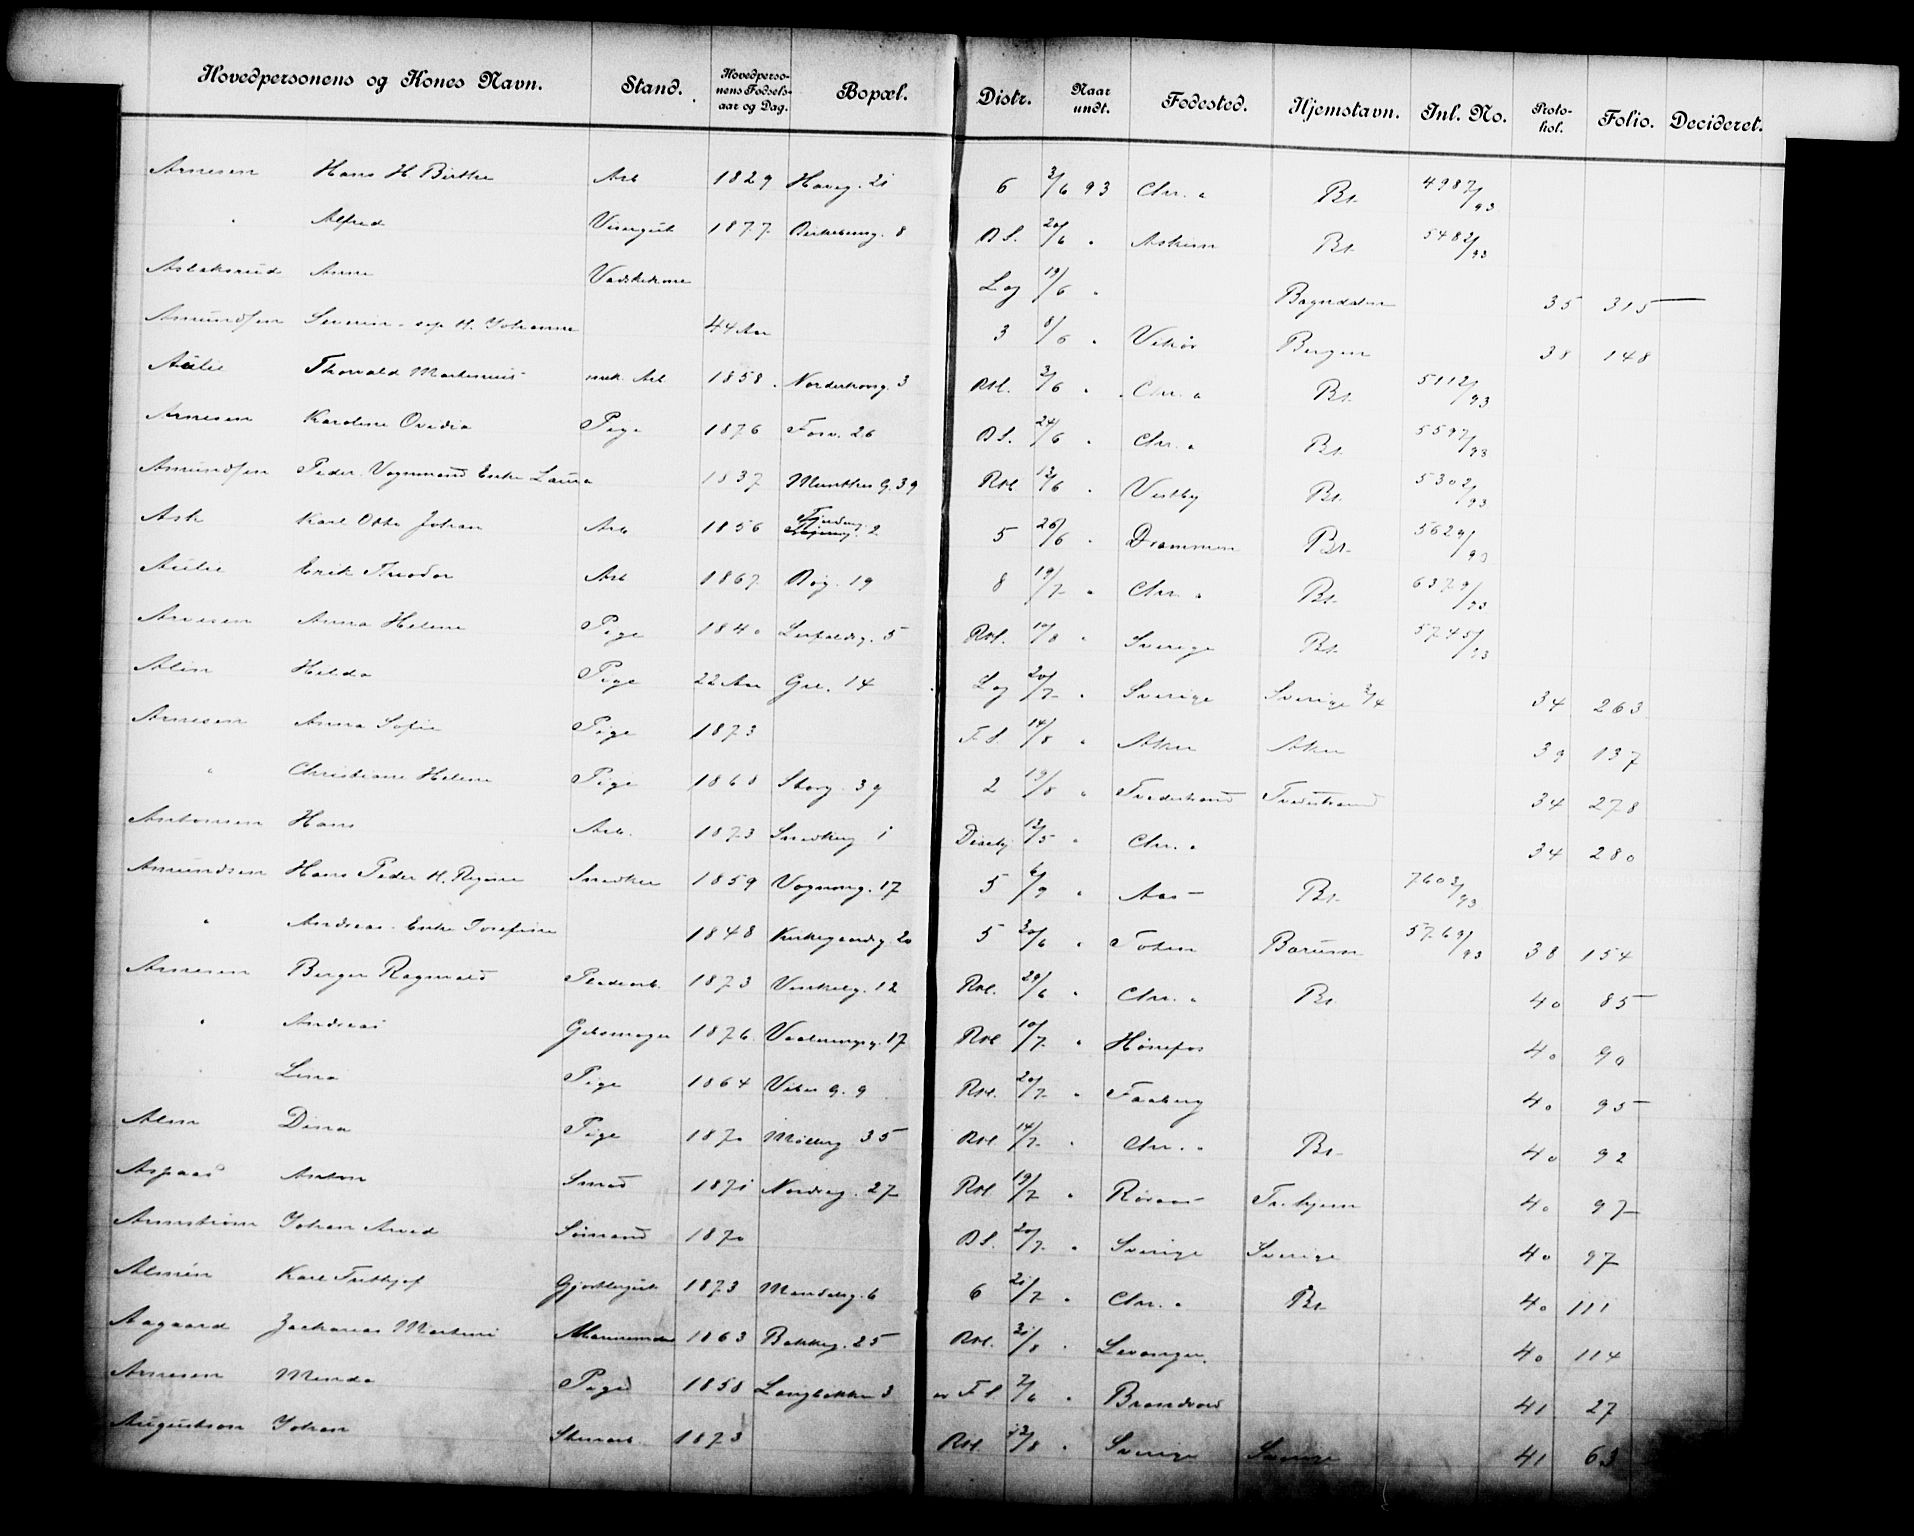 Hovedpersonens og Kones Navn. Stand. Hovedpersonens Fødselsaar og Dag. Bopæl. Distr. Naar undt. Fødested. Hjemstavn. Inl. No. Protokol. Folio. Decideret.
Arnesen Hans H. Birthe Arb 1829 Haveg. 21 6 2/6 93 Chr. a Bt. 4987/93
" Alfred Visergut 1877 Birkebeing. 8 B.S. 20/6 " Askim Bt 5482/93
Aslaksrud Anna Vadskekone Log 19/6 " Bagndalen 35 315 —
Amundsen Severin, H. Johanne 44 Aar 3 8/6 " Vikør Bergen 38 148
Aulie Thorvald Martinius Arb 1858 Norderhovg. 3 Rol. 2/6 " Chr. a Bt. 5112/93
Arnesen Karoline Ovedia Pige 1876 Fossv. 26 B.S. 24/6 " Chr. a Bt. 5597/93
Amundsen Peder Vognmand Enke Laura 1837 Munthes G. 39 Rol 12/6 " Vestby Bt. 5302/93
Ask Karl Otto Johan Arb 1856 2 5 26/6 " Drammen Bt. 5629/93
Aulie Erik Theodor Arb 1867 Bøg. 19 8 19/7 " Chr. a Bt. 6379/93
Arnesen Anna Helene Pige 1840 Leirfaldsg. 5 Rol. 10/8 " Sverige Bt. 5745/93
Alin Hilda Pige 22 Aar Grl. 14 Log 20/7 " Sverige Sverige 3/4 34 263
Arnesen Anna Sofie Pige 1873 F.S. 14/8 " Aker Aker 39 137
" Christiane Helene Pige 1868 Storg. 39 2 19/8 " Tvedestrand Tvedestrand 34 278
Antonsen Hans Arb. 1873 Snedkerg 1 12/5 " Chr. a 34 280
Amundsen Hans Peder H. Regine Snedker 1859 Vognmg. 17 5 6/9 " Aas Bt 7603/93
" Andreas Enke Josefine 1848 Kirkegaardsg. 20 5 30/6 " Toten Bærum 5769/93 38 154
Arnesen Berger Ragnvald Pladearb. 1873 Vinkelg. 12 Rol. 29/6 " Chr. a Bt 40 85
" Andreas Gjbsmager 1876 Vaalerengg. 17 Rol 10/7 " Hønefos 40 90
" Lina Pige 1864 Vibes G. 9 Rol. 20/7 " Faaberg 40 95
Alm Dina Pige 1870 Møllerg 35 Rol 14/7 " Chr. a Bt. 40 92
Aspaas Anton Smed 1871 Nordreg. 27 Rol 19/7 " Røraas Tr.hjem 40 97
Armstrøm Johan Arvid Sømand 1870 B.S. 20/7 " Sverige Sverige 40 97
Almén Karl Frithjof Gjørtlergut 1873 Mandalsg. 6 6 21/7 " Chr. a Bt 40 111
Aagaard Zacharias Martini 1863 Bakkeg. 25 Rol. 31/8 " Levanger. 40 114
Arnesen Minda Pige 1858 Langbakken 3 F.S. 7/6 " Brandvold 41 27
Augustson Johan Stenarb. 1873 Rol. 12/8 " Sverige Sverige 41 63